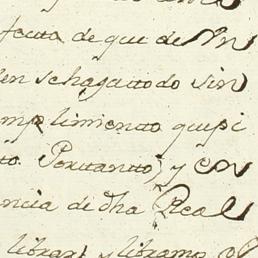 fecta de que de Un
len se haga todo sin
mplimiento qe pi
to Portanto, y en
ncia de dha Real
librar, y libramos